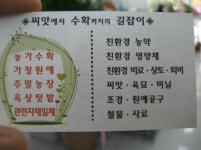 씨앗에서 수확까지의 길잡이
농가수확
가정원예
주말농장
옥상텃밭
관련자재일체
친환경 농약
친환경 영양제
친환경 비료·상토·퇴비
씨앗·육묘·비닐
조경·원예공구
철물·사료